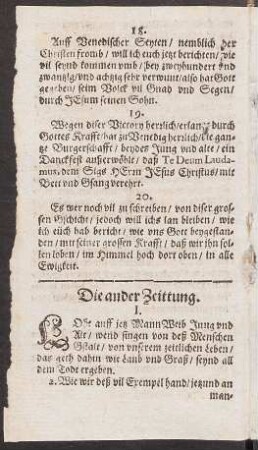 18.
Auff Venedischer Seyten / nemblich der
Christen fromb / will ich euch jetzt berichten / wie
vil seynd kommen vmb / bey zweyhundert vnd
zwantzig / vnd achtzig sehr verwunt / also hat Gott
gegeben / seim Volck vil Gnad vnd Segen /
durch JEsum seinen Sohn.
19.
Wegen diser Victory herzlich / erlangt durch
Gottes Krafft / hat zu Venedig herzlich / die gan-
tze Burgerschafft / beydes Jung vnd alt / ein
Danckfest außerwöhlt / daß Te Deum Lauda-
mus, dem Sigs HErrn JEsus Christus / mit
Bett vnd Gsang verehrt.
20.
Es wer noch vil zu schreiben / von diser gros-
sen Gschicht / jedoch will ichs lan bleiben / wie
ich euch hab bericht / wie vns Gott beygestan-
den / mit seiner grossen Krafft / daß wir jhn sol-
len loben / im Himmel hoch dort oben / in alle
Ewigkeit.
Die ander Zeittung.
1.
HOrt auff jetz Mann Weib Jung vnd
Alt / wend singen von deß Menschen
Gstalt / von vnserem zeitlichen Leben /
das geth dahin wie Laub vnd Graß / seynd all
dem Todt ergeben.
2. Wie wir deß vil Exempel hand / jetzund an
man-